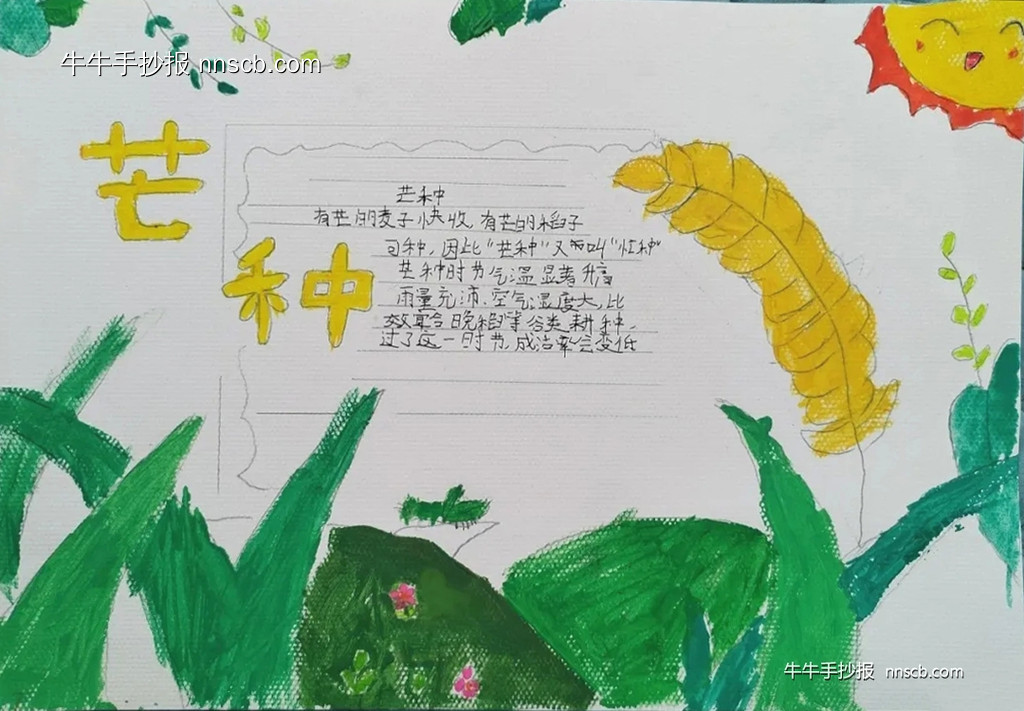 牛牛手抄报 nnscb.com
芒
种
芒种
有芒的麦子快收,有芒的稻子
可种,因此"芒种"又叫"忙种"
芒种时节气温显著升高
雨量充沛,空气湿度大,比
较适合晚稻等谷类耕种,
过了这一时节,成活率会变低
牛牛手抄报 nnscb.com